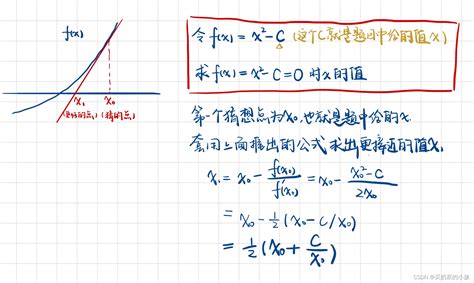 f(x)
x₁ x₀
(更好的点) (猜的点)
令 f(x) = x² - C (这个C就是题目中给的值x)
求 f(x) = x² - C = 0 时 x 的值
第一个猜想点为 x₀, 也就是题中给的 x.
套用上面推出的公式, 求出更接近的值 x₁
x₁ = x₀ - f(x₀)/f'(x₀) = x₀ - (x₀² - C)/2x₀
= x₀ - 1/2 (x₀ - C/x₀)
= 1/2 (x₀ + C/x₀)